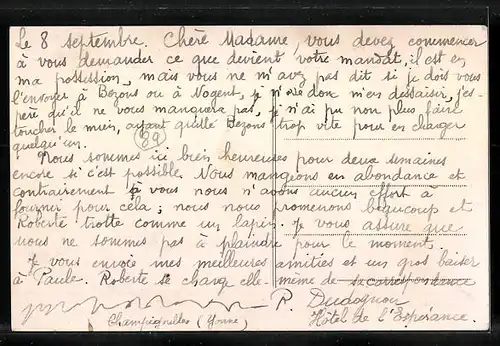 Le 8 septembre. Chère Madame, vous devez commencer
à vous demander ce que devient votre mandat, il est en
ma possession, mais vous ne m'avez pas dit si je dois vous
l'envoyer à Bezons ou à Nogent, je n'ose donc m'en dessaisir, j'es-
père qu'il ne vous manquera pas, je n'ai pu non plus faire
toucher le mien, ayant quitté Bezons trop vite pour en charger
quelqu'un.
Nous sommes ici bien heureuses pour deux semaines
encore si c'est possible. Nous mangeons en abondance et
contrairement à vous nous n'avons aucun effort à
fournir pour cela ; nous nous promenons beaucoup et
Roberte trotte comme un lapin. Je vous assure que
nous ne sommes pas à plaindre pour le moment.
Je vous envoie mes meilleures amitiés et un gros baiser
à Paule. Roberte se charge elle-même de sa correspondance
P. Dudognon
Champignelles (Yonne)
Hôtel de l'Espérance.